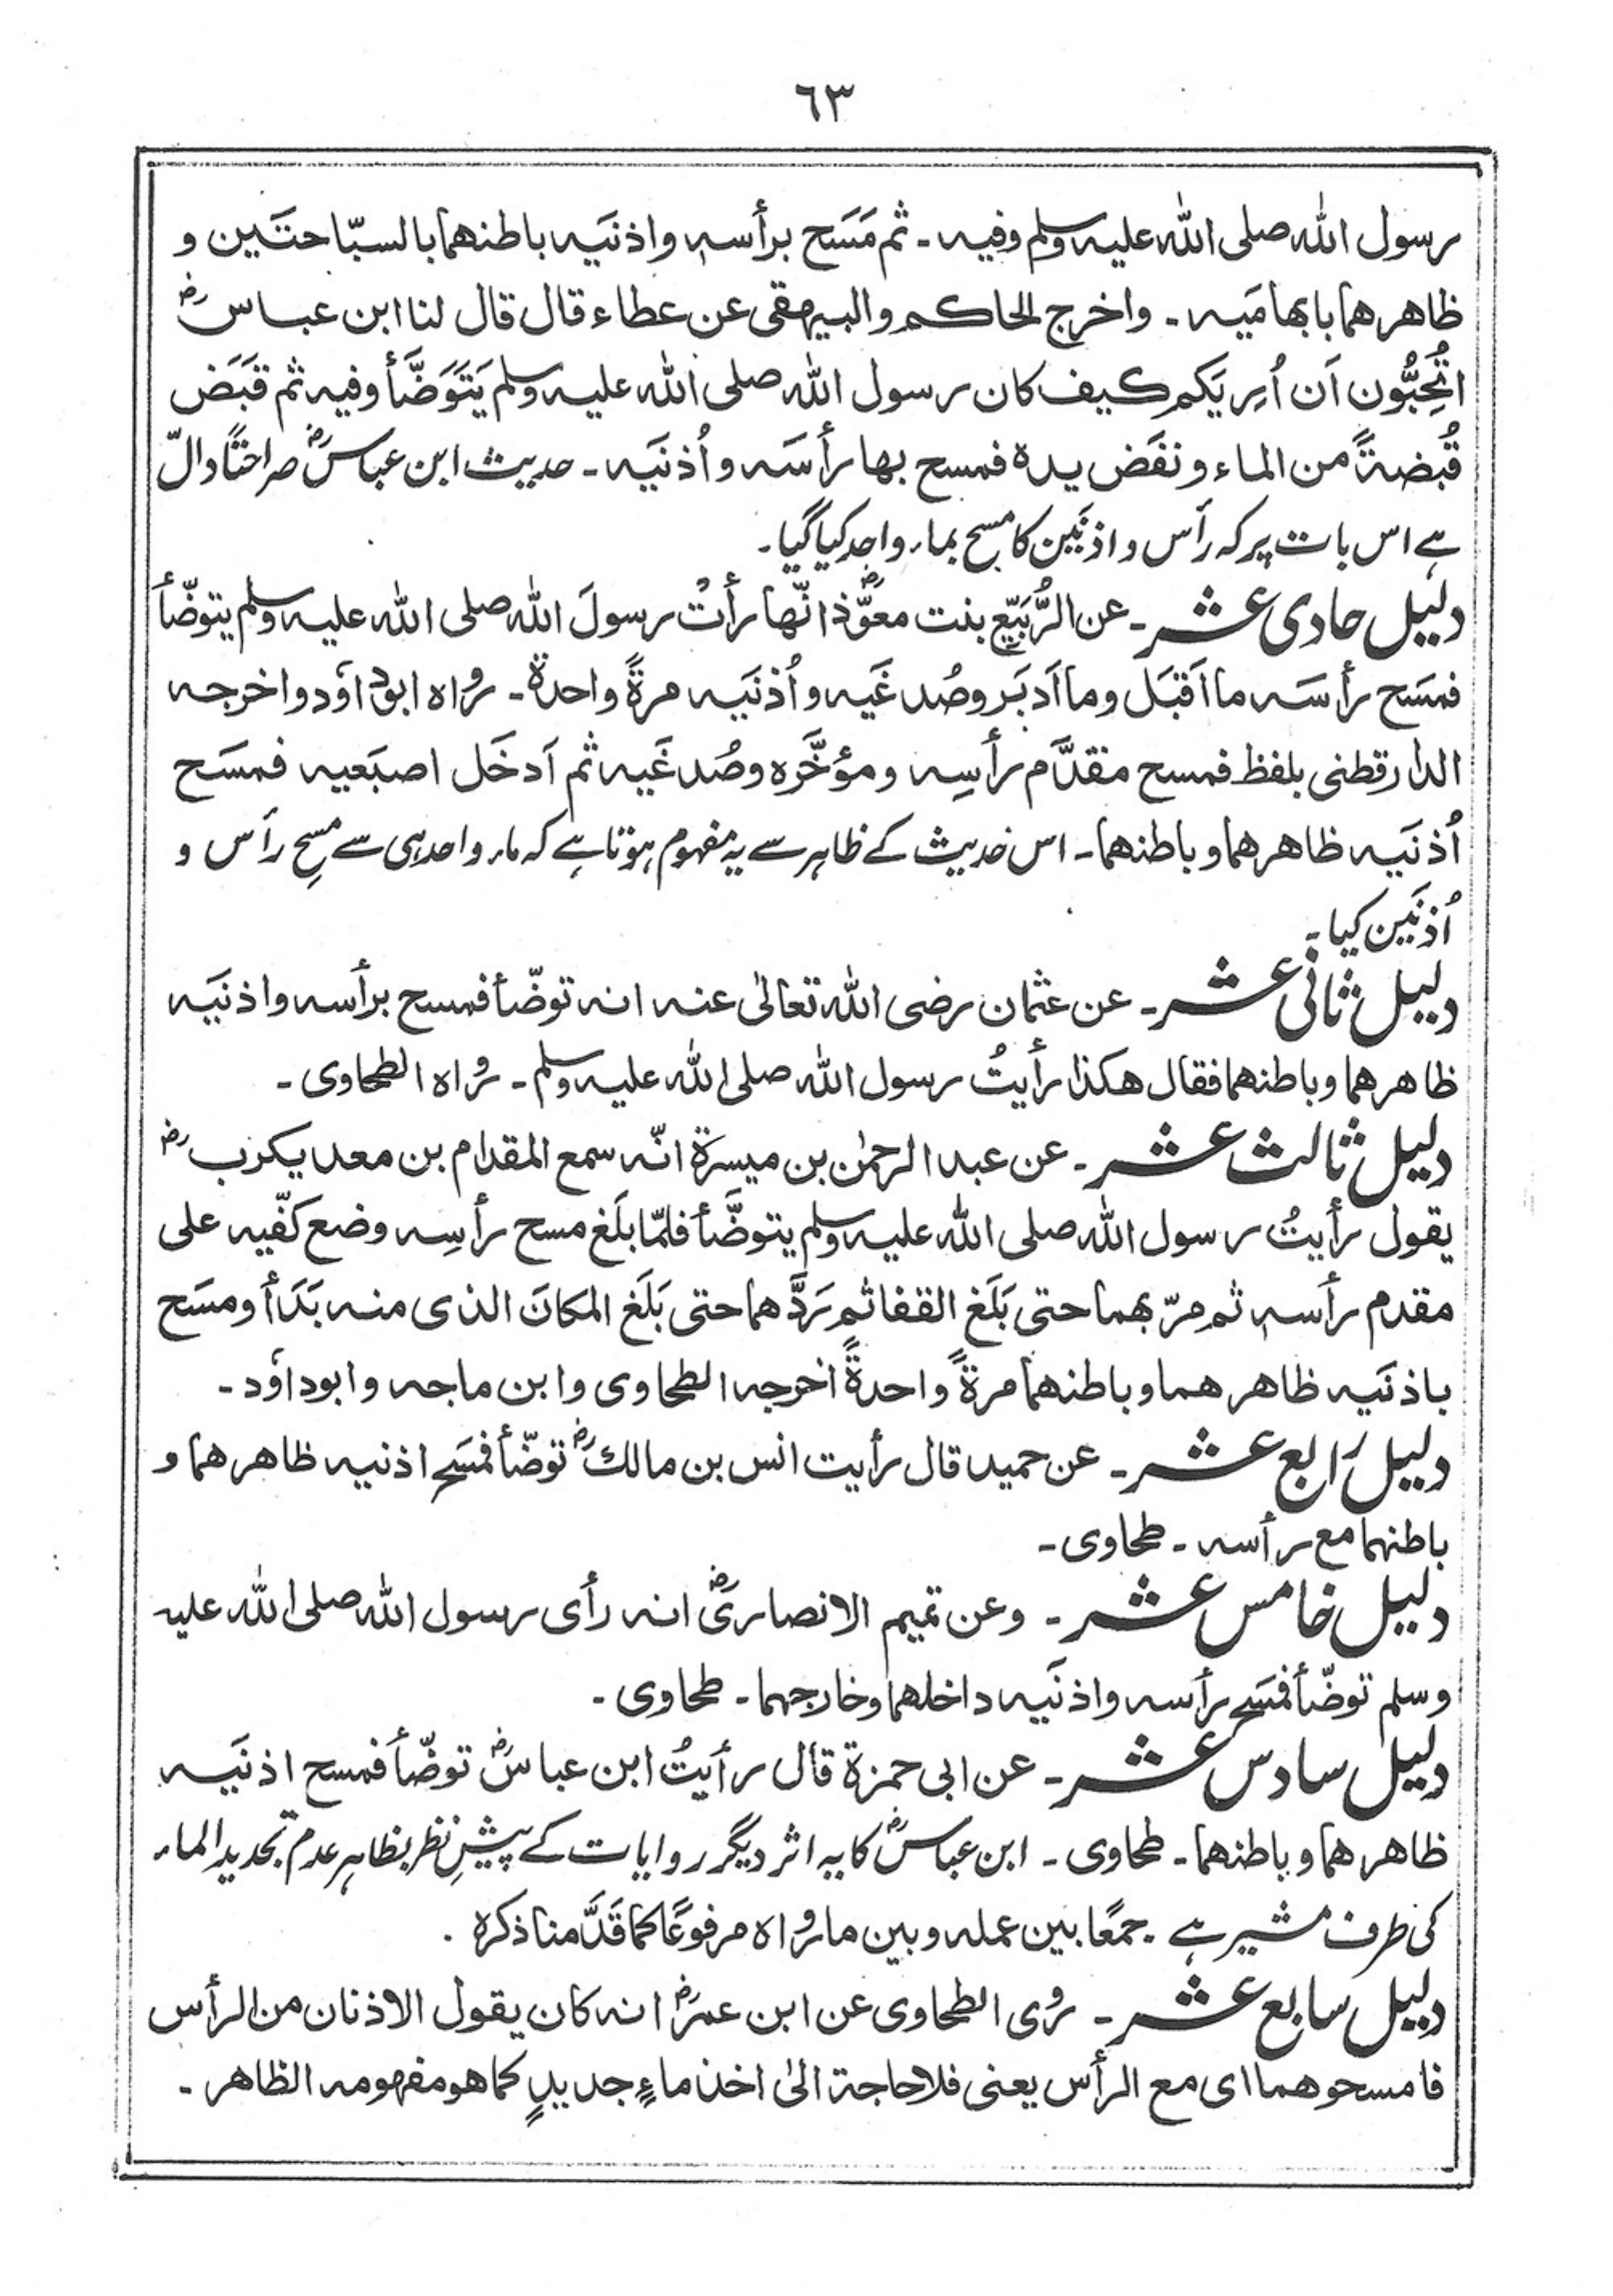 ٦٣
رسول الله صلى الله عليه وسلم وفيه ۔ ثم مَسَح برأسہٖ واذنَيه باطنهما بالسبّاحتَين و
ظاهرهما بابهامَيه ۔ واخرج الحاكم والبيهقى عن عطاء قال قال لنا ابن عباس رض
اتُحِبُّون اَن اُرِيَكم كيف كان رسول الله صلى الله عليه وسلم يَتَوَضَّأ وفيه ثم قبَض
قُبضةً من الماء ونفَض يده فمسح بها رأسَه واُذنَيه ۔ حدیث ابن عباسؓ صراحتًا دالّ
ہے اس بات پر کہ رأس و اذنَین کا مسح بماء واحد کیا گیا۔
دلیل حادی عشر ۔ عن الرُّبَيِّع بنت معوّذؓ انّها رأتْ رسولَ الله صلى الله عليه وسلم يتوضّأ
فمسَح رأسَه ما اَقبَل وما اَدبَر وصُدغَيه واُذنَيه مرةً واحدة ۔ رواه ابوداؤد واخرجه
الدارقطنى بلفظ فمسح مقدَّم رأسِه ومؤخَّره وصُدغَيه ثم اَدخَل اصبَعيه فمسَح
اُذنَيه ظاهرهما وباطنهما ۔ اس حدیث کے ظاہر سے یہ مفہوم ہوتا ہے کہ ماء واحد ہی سے مسحِ رأس و
اُذنَین کیا ۔
دلیل ثانی عشر ۔ عن عثمان رضى الله تعالىٰ عنه انه توضّأ فمسح برأسه واذنيَه
ظاهرهما وباطنهما فقال هكذا رأيتُ رسول الله صلى الله عليه وسلم ۔ رواه الطحاوى ۔
دلیل ثالث عشر ۔ عن عبد الرحمٰن بن ميسرة انّه سمع المقدام بن معديكرب رض
يقول رأيتُ رسول الله صلى الله عليه وسلم يتوضَّأ فلمّا بلَغ مسح رأسِه وضع كفّيه على
مقدم رأسہٖ ثم مرّ بهما حتى بَلَغ القفا ثم رَدَّهما حتى بَلَغ المكانَ الذى منه بَدَأ ومسَح
باذنَيه ظاهرهما وباطنهما مرةً واحدةً اخرجه الطحاوى وابن ماجه وابوداؤد ۔
دلیل رابع عشر ۔ عن حميد قال رأيت انس بن مالكؓ توضّأ فمسَح اذنيه ظاهرهما و
باطنهما مع رأسه ۔ طحاوی ۔
دلیل خامس عشر ۔ وعن تميم الانصاریؓ انه رأى رسول الله صلى الله عليه
وسلم توضّأ فمسَح برأسه واذنَيه داخلهما وخارجهما ۔ طحاوی ۔
دلیل سادس عشر ۔ عن ابى حمزة قال رأيتُ ابن عباسؓ توضّأ فمسح اذنَيه
ظاهرهما وباطنهما ۔ طحاوی ۔ ابن عباسؓ کا یہ اثر دیگر روایات کے پیشِ نظر بظاہر عدم تجدیدِ الماء
کی طرف مشیر ہے ۔ جمعًا بين عمله وبين ما رواه مرفوعًا كما قَدَّمنا ذكره ۔
دلیل سابع عشر ۔ روى الطحاوى عن ابن عمرؓ انه كان يقول الاذنان من الرأس
فامسحوهما اى مع الرأس يعنى فلا حاجة الىٰ اخذ ماءٍ جديدٍ كما هو مفهومه الظاهر ۔